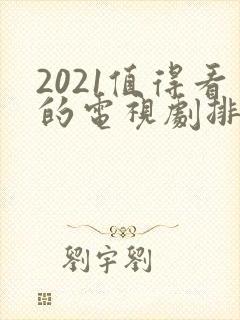 2021值得看
的電視劇排
劉宇劉